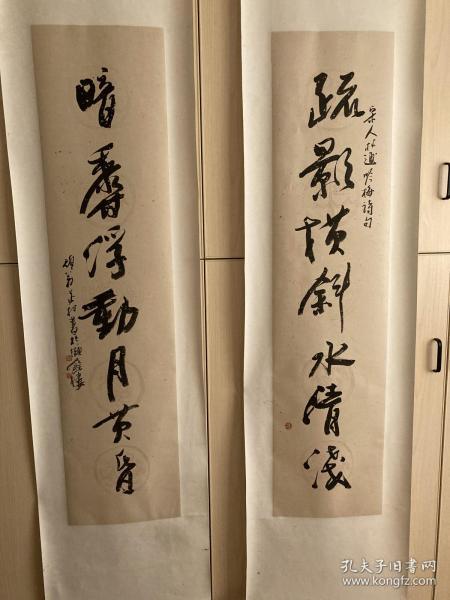 疏影橫斜水清淺
宋人林逋咏梅詩句
暗香浮動月黄昏
孔夫子旧书网
www.kongfz.com